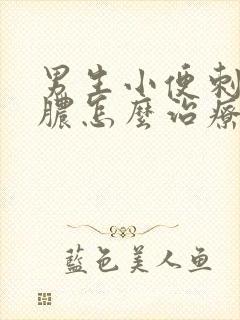 男生小便刺
膿怎麼治療
藍色美人鱼